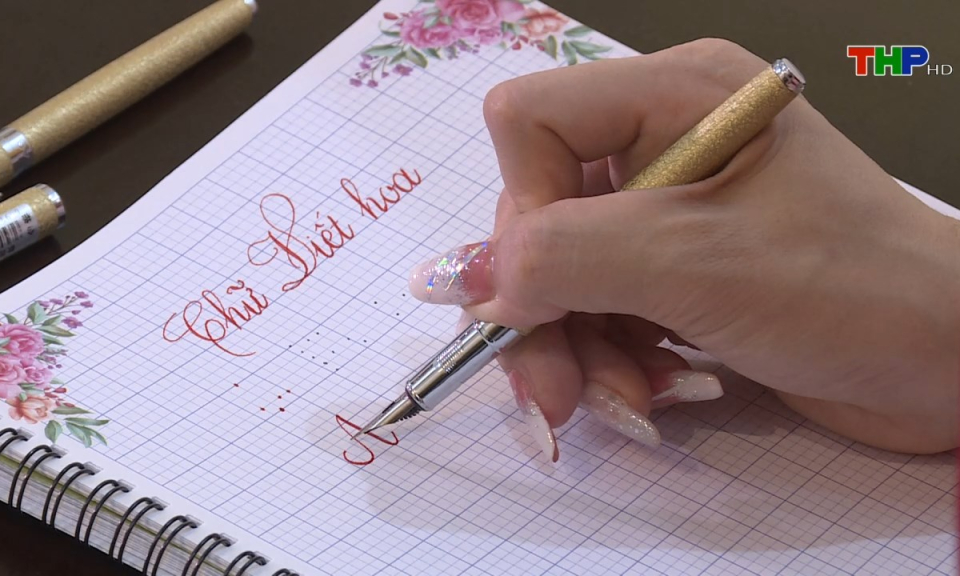 THP HD
Chữ Viết hoa
A